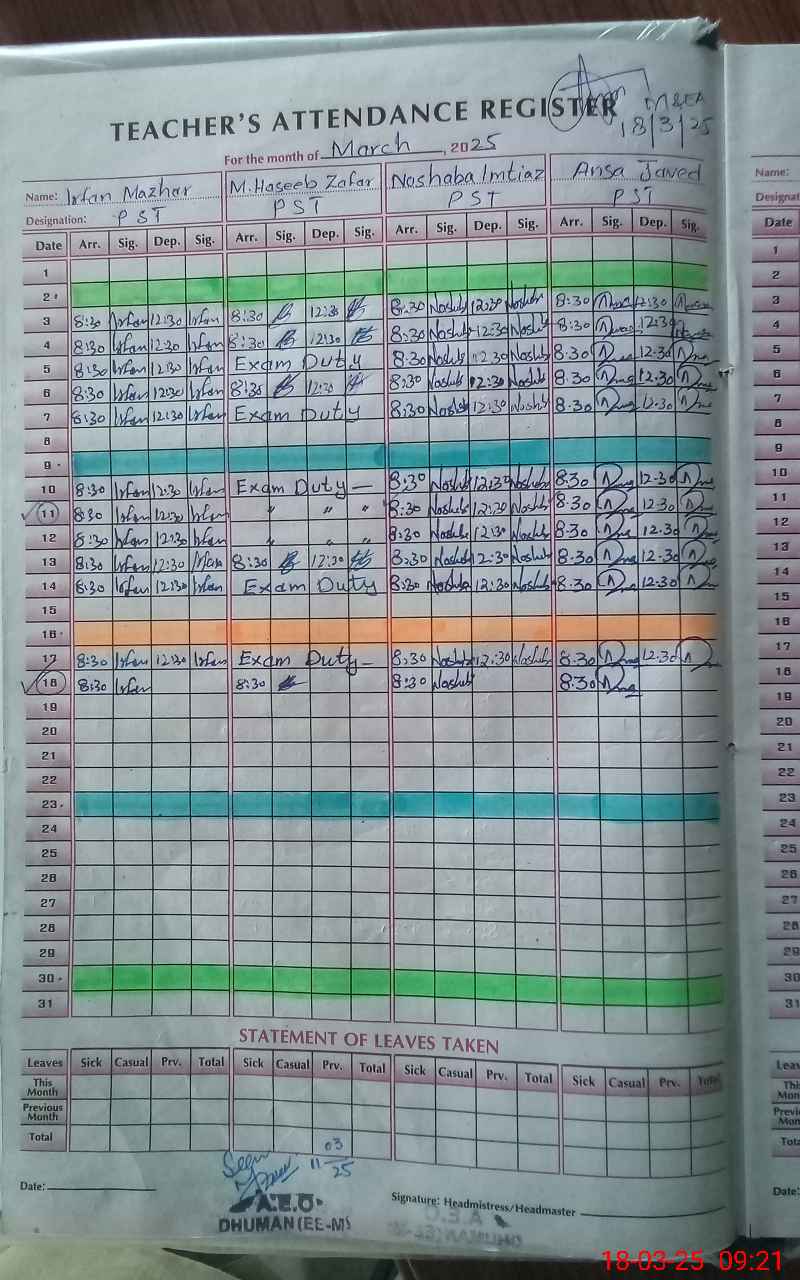 TEACHER'S ATTENDANCE REGISTER
18/3/25
For the month of March, 2025
Name: Irfan Mazhar M. Haseeb Zafar Noshaba Imtiaz Arisa Javed Name:
Designation: PST PST PST PST
Date Arr. Sig. Dep. Sig. Arr. Sig. Dep. Sig. Arr. Sig. Dep. Sig. Arr. Sig. Dep. Sig. Date
1 1
2 2
3 8:30 Irfan 12:30 Irfan 8:30 12:30 8:30 Noshib 12:30 Noshib 8:30 12:30 3
4 8:30 Irfan 12:30 Irfan 8:30 12:30 8:30 Noshib 12:30 Noshib 8:30 12:30 4
5 8:30 Irfan 12:30 Irfan Exam Duty 8:30 Noshib 12:30 Noshib 8:30 12:30 5
6 8:30 Irfan 12:30 Irfan 8:30 12:30 8:30 Noshib 12:30 Noshib 8:30 12:30 6
7 8:30 Irfan 12:30 Irfan Exam Duty 8:30 Noshib 12:30 Noshib 8:30 12:30 7
8 8
9 9
10 8:30 Irfan 12:30 Irfan Exam Duty — 8:30 Noshib 12:30 Noshib 8:30 12:30 10
11 8:30 Irfan 12:30 Irfan " " " 8:30 Noshib 12:30 Noshib 8:30 12:30 11
12 8:30 Irfan 12:30 Irfan " " " 8:30 Noshib 12:30 Noshib 8:30 12:30 12
13 8:30 Irfan 12:30 Irfan 8:30 12:30 8:30 Noshib 12:30 Noshib 8:30 12:30 13
14 8:30 Irfan 12:30 Irfan Exam Duty 8:30 Noshib 12:30 Noshib 8:30 12:30 14
15 15
16 16
17 8:30 Irfan 12:30 Irfan Exam Duty — 8:30 Noshib 12:30 Noshib 8:30 12:30 17
18 8:30 Irfan 8:30 8:30 Noshib 8:30 18
19 19
20 20
21 21
22 22
23 23
24 24
25 25
26 26
27 27
28 28
29 29
30 30
31 31
STATEMENT OF LEAVES TAKEN
Leaves Sick Casual Prv. Total Sick Casual Prv. Total Sick Casual Prv. Total Sick Casual Prv. Total
This Month
Previous Month
Total
Seen 11 03 25
Date:
A.E.O
DHUMAN (EE-M)
Signature: Headmistress/Headmaster
Date:
18-03-25 09:21